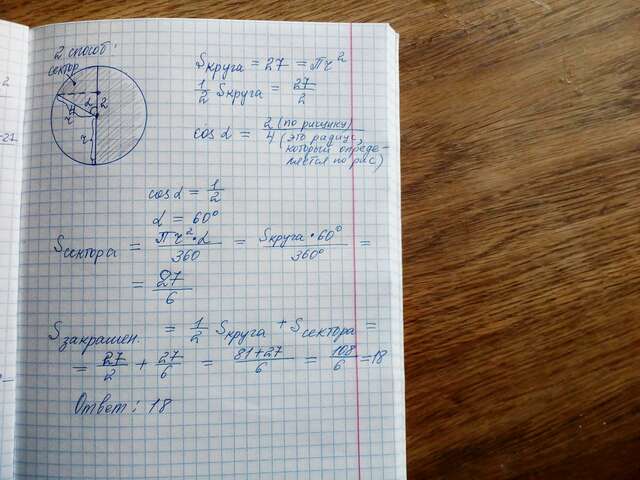 2 способ:
сектор
α 2
4
r
r
Sкруга = 27 = πr²
1/2 Sкруга = 27/2
cos α = 2 (по рисунку) / 4 (это радиус,
который опреде-
ляется по рис)
cos α = 1/2
α = 60°
Sсектора = πr²·α / 360 = Sкруга·60° / 360° =
= 27/6
Sзакрашен. = 1/2 Sкруга + Sсектора =
= 27/2 + 27/6 = 81+27 / 6 = 108/6 = 18
Ответ: 18